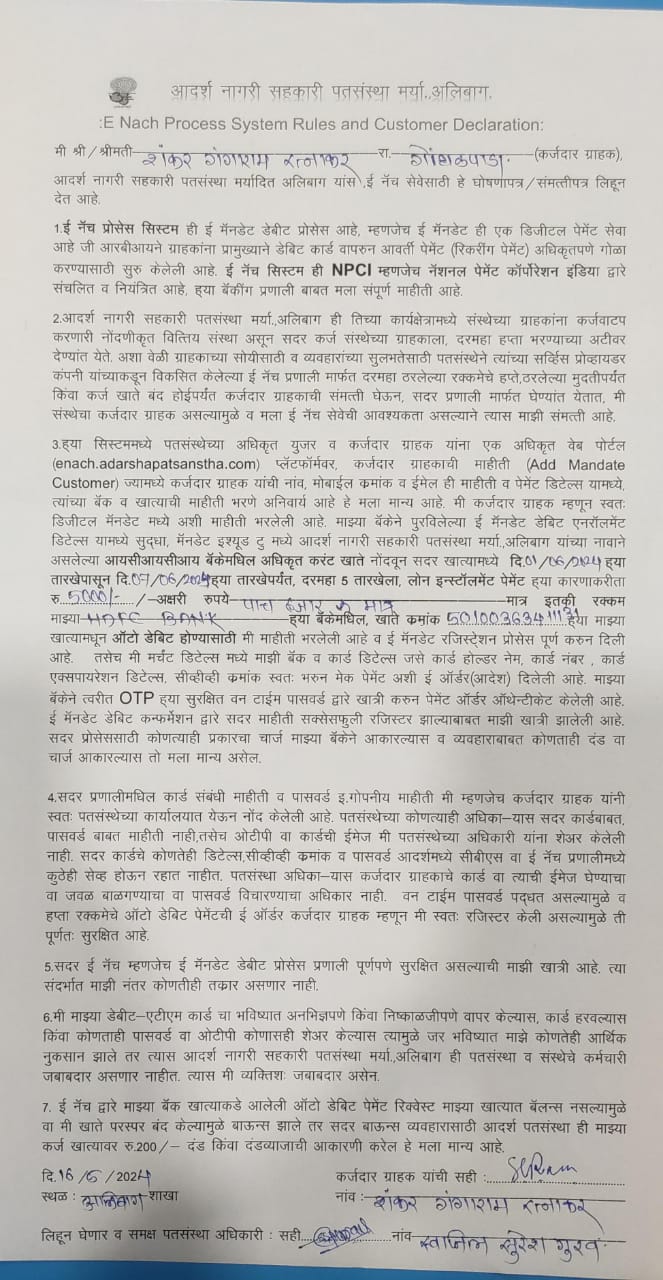 आदर्श नागरी सहकारी पतसंस्था मर्या.,अलिबाग.
:E Nach Process System Rules and Customer Declaration:
मी श्री/श्रीमती शंकर गंगाराम रत्नाकर रा. गोंधळपाडा. (कर्जदार ग्राहक),
आदर्श नागरी सहकारी पतसंस्था मर्यादित अलिबाग यांस,ई नॅच सेवेसाठी हे घोषणापत्र/संमत्तीपत्र लिहून
देत आहे.
1.ई नॅच प्रोसेस सिस्टम ही ई मॅनडेट डेबीट प्रोसेस आहे, म्हणजेच ई मॅनडेट ही एक डिजीटल पेमेंट सेवा
आहे जी आरबीआयने ग्राहकांना प्रामुख्याने डेबिट कार्ड वापरुन आवर्ती पेमेंट (रिकरींग पेमेंट) अधिकृतपणे गोळा
करण्यासाठी सुरु केलेली आहे. ई नॅच सिस्टम ही NPCI म्हणजेच नॅशनल पेमेंट कॉर्पोरेशन इंडिया द्वारे
संचलित व नियंत्रित आहे, ह्या बॅकींग प्रणाली बाबत मला संपूर्ण माहीती आहे.
2.आदर्श नागरी सहकारी पतसंस्था मर्या.,अलिबाग ही तिच्या कार्यक्षेत्रामध्ये संस्थेच्या ग्राहकांना कर्जवाटप
करणारी नोंदणीकृत वित्तिय संस्था असून सदर कर्ज संस्थेच्या ग्राहकाला, दरमहा हप्ता भरण्याच्या अटीवर
देण्यांत येते. अशा वेळी ग्राहकाच्या सोयीसाठी व व्यवहारांच्या सुलभतेसाठी पतसंस्थेने त्यांच्या सर्व्हिस प्रोव्हायडर
कंपनी यांच्याकडून विकसित केलेल्या ई नॅच प्रणाली मार्फत दरमहा ठरलेल्या रक्कमेचे हप्ते,ठरलेल्या मुदतीपर्यंत
किंवा कर्ज खाते बंद होईपर्यंत कर्जदार ग्राहकाची संमत्ती घेऊन, सदर प्रणाली मार्फत घेण्यांत येतात, मी
संस्थेचा कर्जदार ग्राहक असल्यामुळे व मला ई नॅच सेवेची आवश्यकता असल्याने त्यास माझी संमत्ती आहे.
3.ह्या सिस्टममध्ये पतसंस्थेच्या अधिकृत युजर व कर्जदार ग्राहक यांना एक अधिकृत वेब पोर्टल
(enach.adarshapatsanstha.com) प्लॅटफॉर्मवर, कर्जदार ग्राहकाची माहीती (Add Mandate
Customer) ज्यामध्ये कर्जदार ग्राहक यांची नांव, मोबाईल क्रमांक व ईमेल ही माहीती व पेमेंट डिटेल्स यामध्ये,
त्यांच्या बॅक व खात्याची माहीती भरणे अनिवार्य आहे हे मला मान्य आहे. मी कर्जदार ग्राहक म्हणून स्वतः
डिजीटल मॅनडेट मध्ये अशी माहीती भरलेली आहे. माझ्या बॅकेने पुरविलेल्या ई मॅनडेट डेबिट एनरॉलमेंट
डिटेल्स यामध्ये सुद्धा, मॅनडेट इश्यूड टु मध्ये आदर्श नागरी सहकारी पतसंस्था मर्या.,अलिबाग यांच्या नावाने
असलेल्या आयसीआयसीआय बॅकेमधिल अधिकृत करंट खाते नोंदवून सदर खात्यामध्ये दि.01/06/2024 ह्या
तारखेपासून दि.07/06/2024 ह्या तारखेपर्यंत, दरमहा 5 तारखेला, लोन इन्स्टॉलमेंट पेमेंट ह्या कारणाकरीता
रु. 5000/- /-अक्षरी रुपये पाच हजार रु मात्र मात्र इतकी रक्कम
माझ्या HDFC BANK ह्या बॅकेमधिल, खाते क्रमांक 50100363411131 ह्या माझ्या
खात्यामधून ऑटो डेबिट होण्यासाठी मी माहीती भरलेली आहे व ई मॅनडेट रजिस्ट्रेशन प्रोसेस पूर्ण करुन दिली
आहे. तसेच मी मर्चंट डिटेल्स मध्ये माझी बॅक व कार्ड डिटेल्स जसे कार्ड होल्डर नेम, कार्ड नंबर , कार्ड
एक्सपायरेशन डिटेल्स, सीव्हीव्ही क्रमांक स्वतः भरुन मेक पेमेंट अशी ई ऑर्डर(आदेश) दिलेली आहे. माझ्या
बॅकेने त्वरीत OTP ह्या सुरक्षित वन टाईम पासवर्ड द्वारे खात्री करुन पेमेंट ऑर्डर ऑथेन्टीकेट केलेली आहे.
ई मॅनडेट डेबिट कन्फर्मेशन द्वारे सदर माहीती सक्सेसफुली रजिस्टर झाल्याबाबत माझी खात्री झालेली आहे.
सदर प्रोसेससाठी कोणत्याही प्रकारचा चार्ज माझ्या बॅकेने आकारल्यास व व्यवहाराबाबत कोणताही दंड वा
चार्ज आकारल्यास तो मला मान्य असेल.
4.सदर प्रणालीमधिल कार्ड संबंधी माहीती व पासवर्ड इ.गोपनीय माहीती मी म्हणजेच कर्जदार ग्राहक यांनी
स्वतः पतसंस्थेच्या कार्यालयात येऊन नोंद केलेली आहे. पतसंस्थेच्या कोणत्याही अधिका-यास सदर कार्डबाबत,
पासवर्ड बाबत माहीती नाही,तसेच ओटीपी वा कार्डची ईमेज मी पतसंस्थेच्या अधिकारी यांना शेअर केलेली
नाही. सदर कार्डचे कोणतेही डिटेल्स,सीव्हीव्ही क्रमांक व पासवर्ड आदर्शमध्ये सीबीएस वा ई नॅच प्रणालीमध्ये
कुठेही सेव्ह होऊन राहत नाहीत. पतसंस्था अधिका-यास कर्जदार ग्राहकाचे कार्ड वा त्याची ईमेज घेण्याचा
वा जवळ बाळगण्याचा वा पासवर्ड विचारण्याचा अधिकार नाही. वन टाईम पासवर्ड पद्धत असल्यामुळे व
हप्ता रक्कमेचे ऑटो डेबिट पेमेंटची ई ऑर्डर कर्जदार ग्राहक म्हणून मी स्वतः रजिस्टर केली असल्यामुळे ती
पूर्णतः सुरक्षित आहे.
5.सदर ई नॅच म्हणजेच ई मॅनडेट डेबीट प्रोसेस प्रणाली पूर्णपणे सुरक्षित असल्याची माझी खात्री आहे. त्या
संदर्भात माझी नंतर कोणतीही तक्रार असणार नाही.
6.मी माझ्या डेबीट-एटीएम कार्ड चा भविष्यात अनभिज्ञपणे किंवा निष्काळजीपणे वापर केल्यास, कार्ड हरवल्यास
किंवा कोणताही पासवर्ड वा ओटीपी कोणासही शेअर केल्यास त्यामुळे जर भविष्यात माझे कोणतेही आर्थिक
नुकसान झाले तर त्यास आदर्श नागरी सहकारी पतसंस्था मर्या.,अलिबाग ही पतसंस्था व संस्थेचे कर्मचारी
जबाबदार असणार नाहीत. त्यास मी व्यक्तिशः जबाबदार असेन.
7. ई नॅच द्वारे माझ्या बॅक खात्याकडे आलेली ऑटो डेबिट पेमेंट रिक्वेस्ट माझ्या खात्यात बॅलन्स नसल्यामुळे
वा मी खाते परस्पर बंद केल्यामुळे बाऊन्स झाले तर सदर बाऊन्स व्यवहारासाठी आदर्श पतसंस्था ही माझ्या
कर्ज खात्यावर रु.200/- दंड किंवा दंडव्याजाची आकारणी करेल हे मला मान्य आहे.
दि.16/5/2024 कर्जदार ग्राहक यांची सही :
स्थळ : अलिबाग शाखा नांव : शंकर गंगाराम रत्नाकर
लिहून घेणार व समक्ष पतसंस्था अधिकारी : सही नांव स्वप्निल सुरेश गुरव.